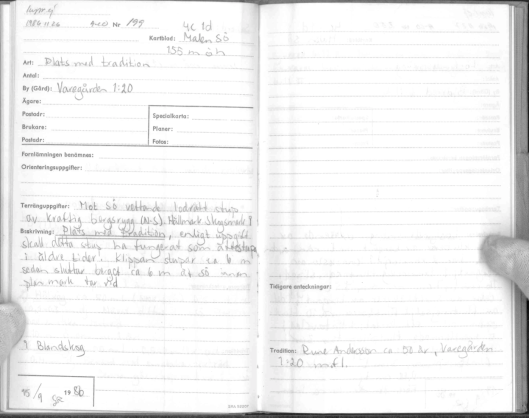 1986 11 26 Nr 199 4c 1d
Kartblad: Malen SÖ
155 m ö h
Art: Plats med tradition
Antal:
By (Gård): Varegården 1:20
Ägare:
Postadr:
Specialkarta:
Brukare:
Planer:
Postadr:
Fotos:
Fornlämningen benämnes:
Orienteringsuppgifter:
Terränguppgifter: Mot SÖ vettande lodrätt stup
av kraftig bergsrygg (N-S). Hällmark. Skogsmark
Beskrivning: Plats med tradition, enligt uppgift
skall detta stup ha fungerat som ättestup
i äldre tider. Klippan stupar ca 6 m
sedan sluttar berget ca 6 m åt SÖ innan
plan mark tar vid
Blandskog
15/9 1986
Tidigare anteckningar:
Tradition: Rune Andersson ca 50 år, Varegården
1:20 m.fl.